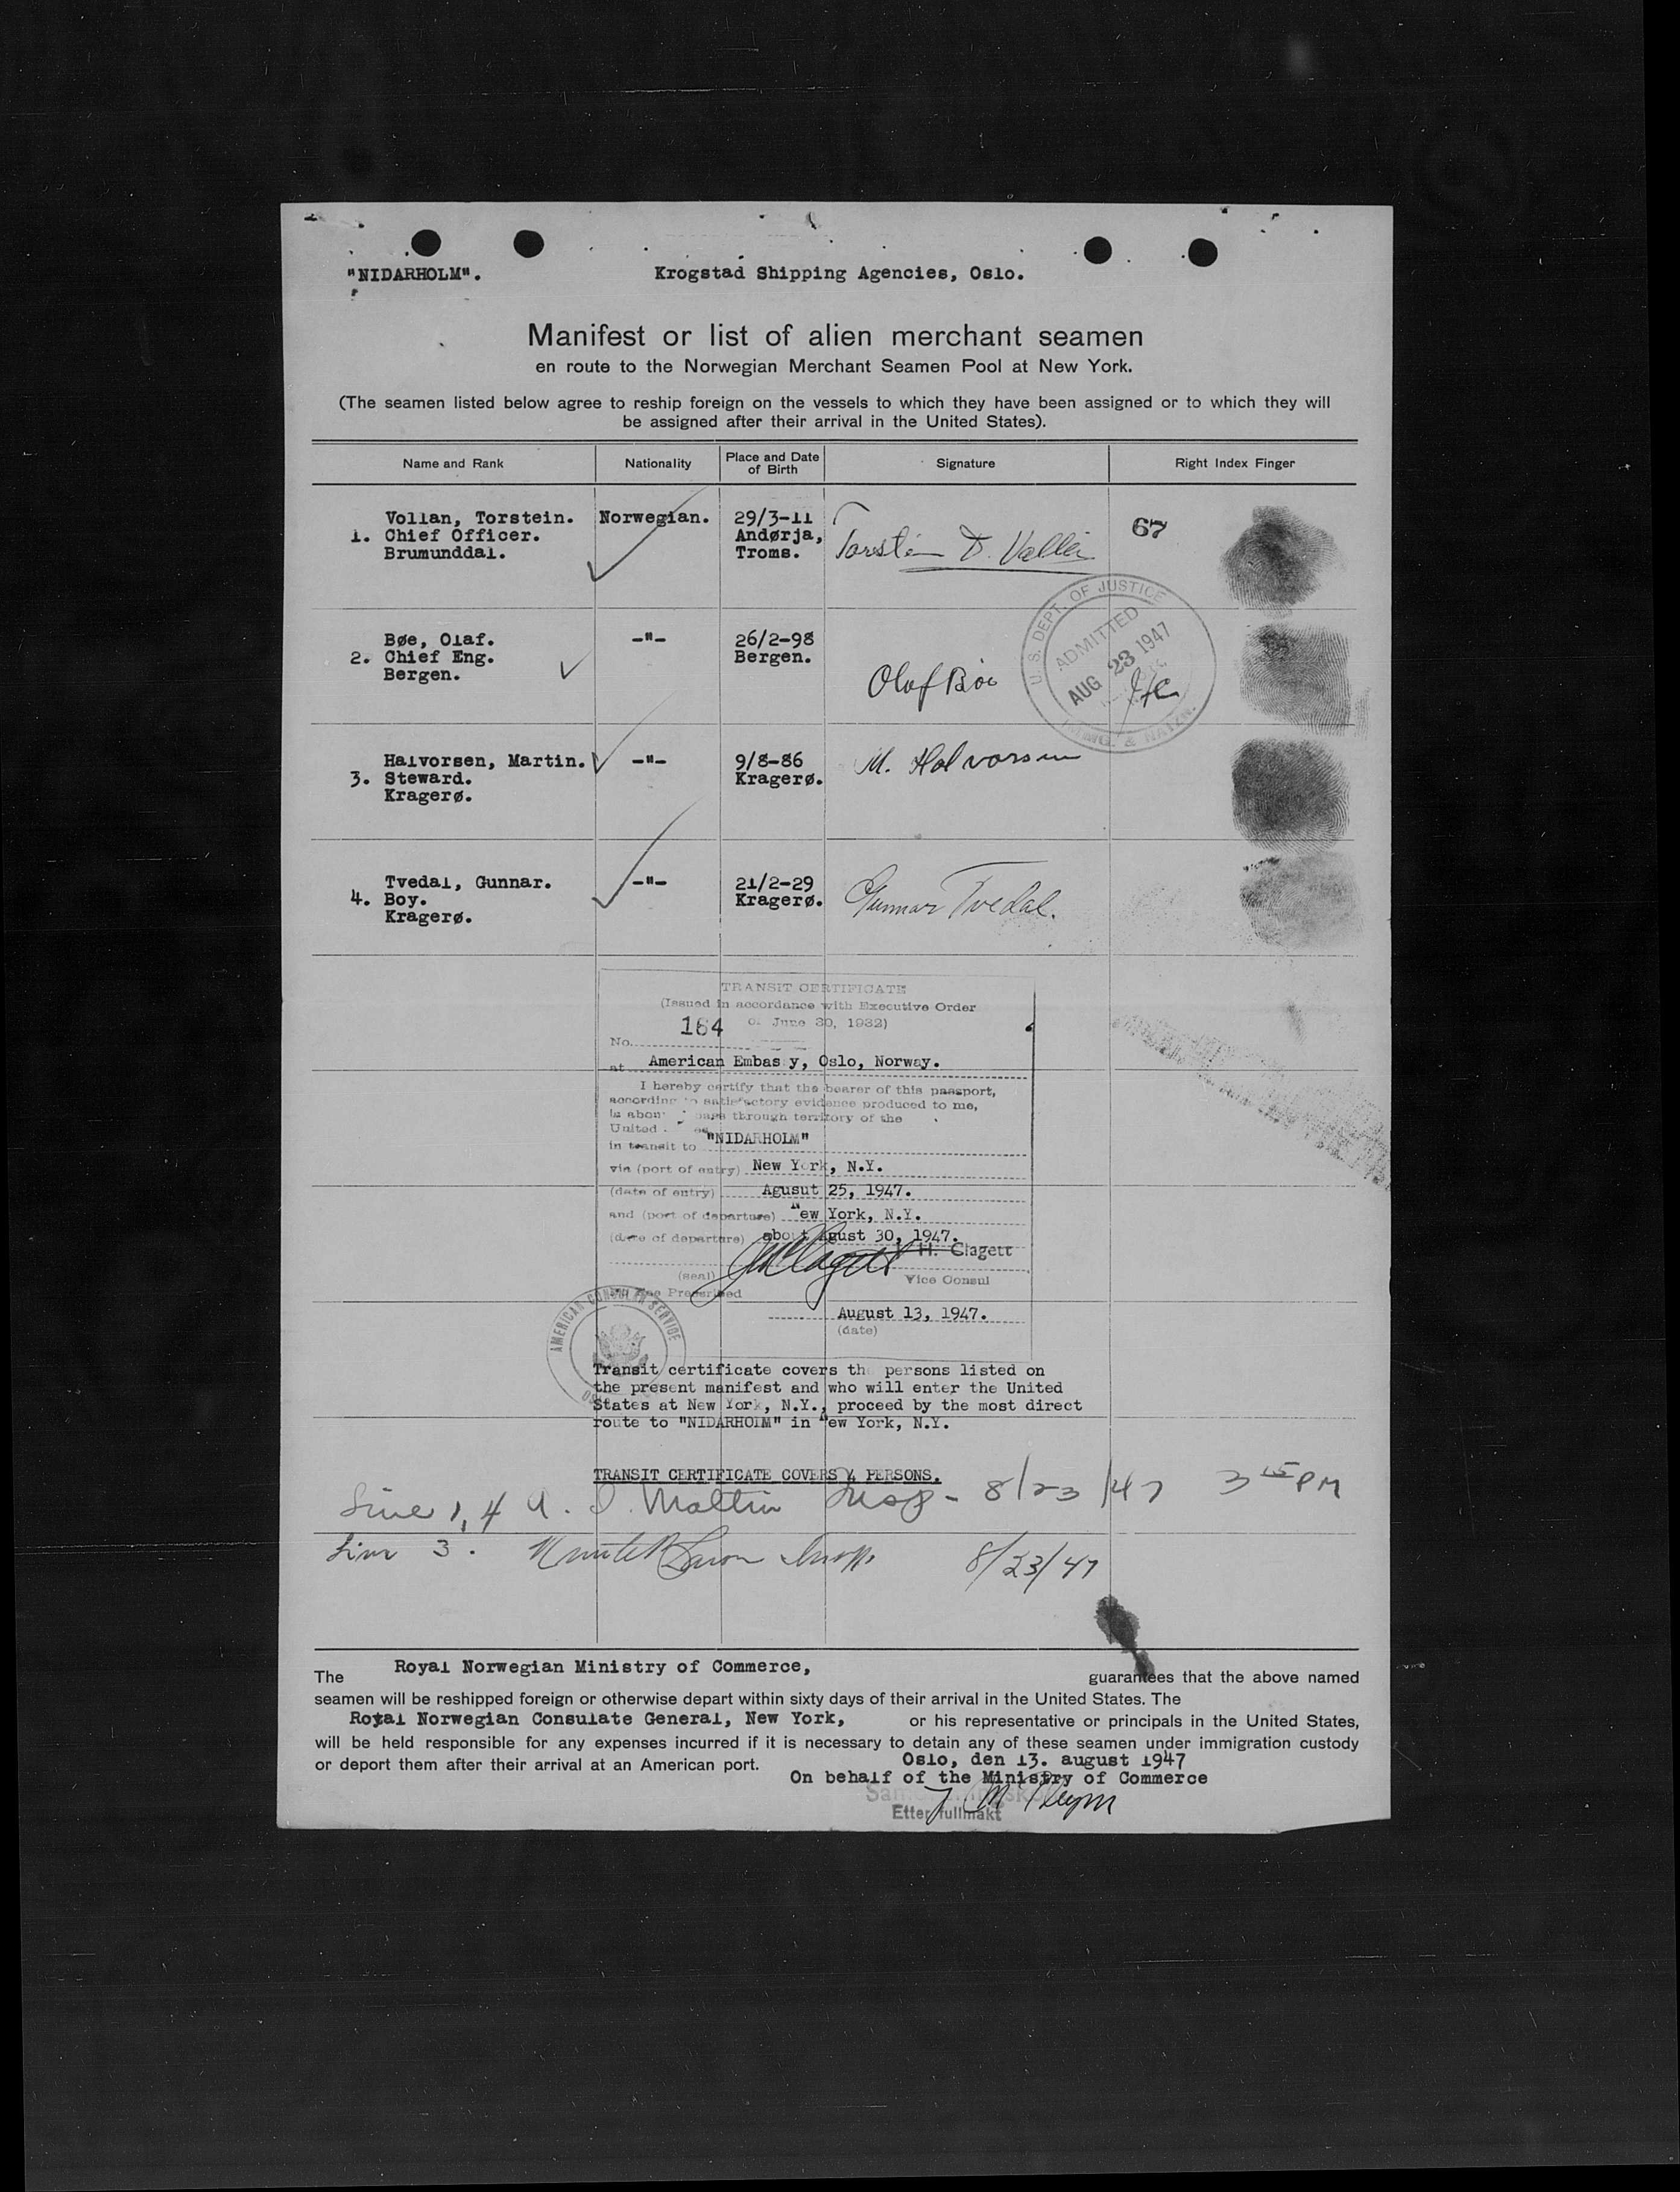 "NIDARHOLM".
Krogstad Shipping Agencies, Oslo.
Manifest or list of alien merchant seamen
en route to the Norwegian Merchant Seamen Pool at New York.
(The seamen listed below agree to reship foreign on the vessels to which they have been assigned or to which they will
be assigned after their arrival in the United States).
Name and Rank Nationality Place and Date of Birth Signature Right Index Finger
Vollan, Torstein. Norwegian. 29/3-11
1. Chief Officer. Andørja,
Brumunddal. Troms.
67
U. S. DEPT. OF JUSTICE
ADMITTED
AUG 23 1947
IMMIG. & NATZN.
Bøe, Olaf. -"- 26/2-98
2. Chief Eng. Bergen.
Bergen.
Olaf Böe
Halvorsen, Martin. -"- 9/8-86
3. Steward. Kragerø.
Kragerø.
M. Halvorsen
Tvedal, Gunnar. -"- 21/2-29
4. Boy. Kragerø.
Kragerø.
Gunnar Tvedal.
TRANSIT CERTIFICATE
(Issued in accordance with Executive Order
June 30, 1932)
No. 164
at American Embas y, Oslo, Norway.
I hereby certify that the bearer of this passport,
according to satisfactory evidence produced to me,
is about pass through territory of the
United
in transit to "NIDARHOLM"
via (port of entry) New York, N.Y.
(date of entry) Agusut 25, 1947.
and (port of departure) New York, N.Y.
(date of departure) about Agust 30, 1947.
H. Clagett
(seal) Vice Consul
Fee Prescribed
August 13, 1947.
(date)
AMERICAN CONSULAR SERVICE
Transit certificate covers the persons listed on
the present manifest and who will enter the United
States at New York, N.Y., proceed by the most direct
route to "NIDARHOLM" in New York, N.Y.
TRANSIT CERTIFICATE COVERS 4 PERSONS.
Line 1, 4 8/23/47 3 15 PM
Line 3. 8/23/47
The Royal Norwegian Ministry of Commerce, guarantees that the above named
seamen will be reshipped foreign or otherwise depart within sixty days of their arrival in the United States. The
Royal Norwegian Consulate General, New York, or his representative or principals in the United States,
will be held responsible for any expenses incurred if it is necessary to detain any of these seamen under immigration custody
or deport them after their arrival at an American port. Oslo, den 13. august 1947
On behalf of the Ministry of Commerce
Etter fullmakt